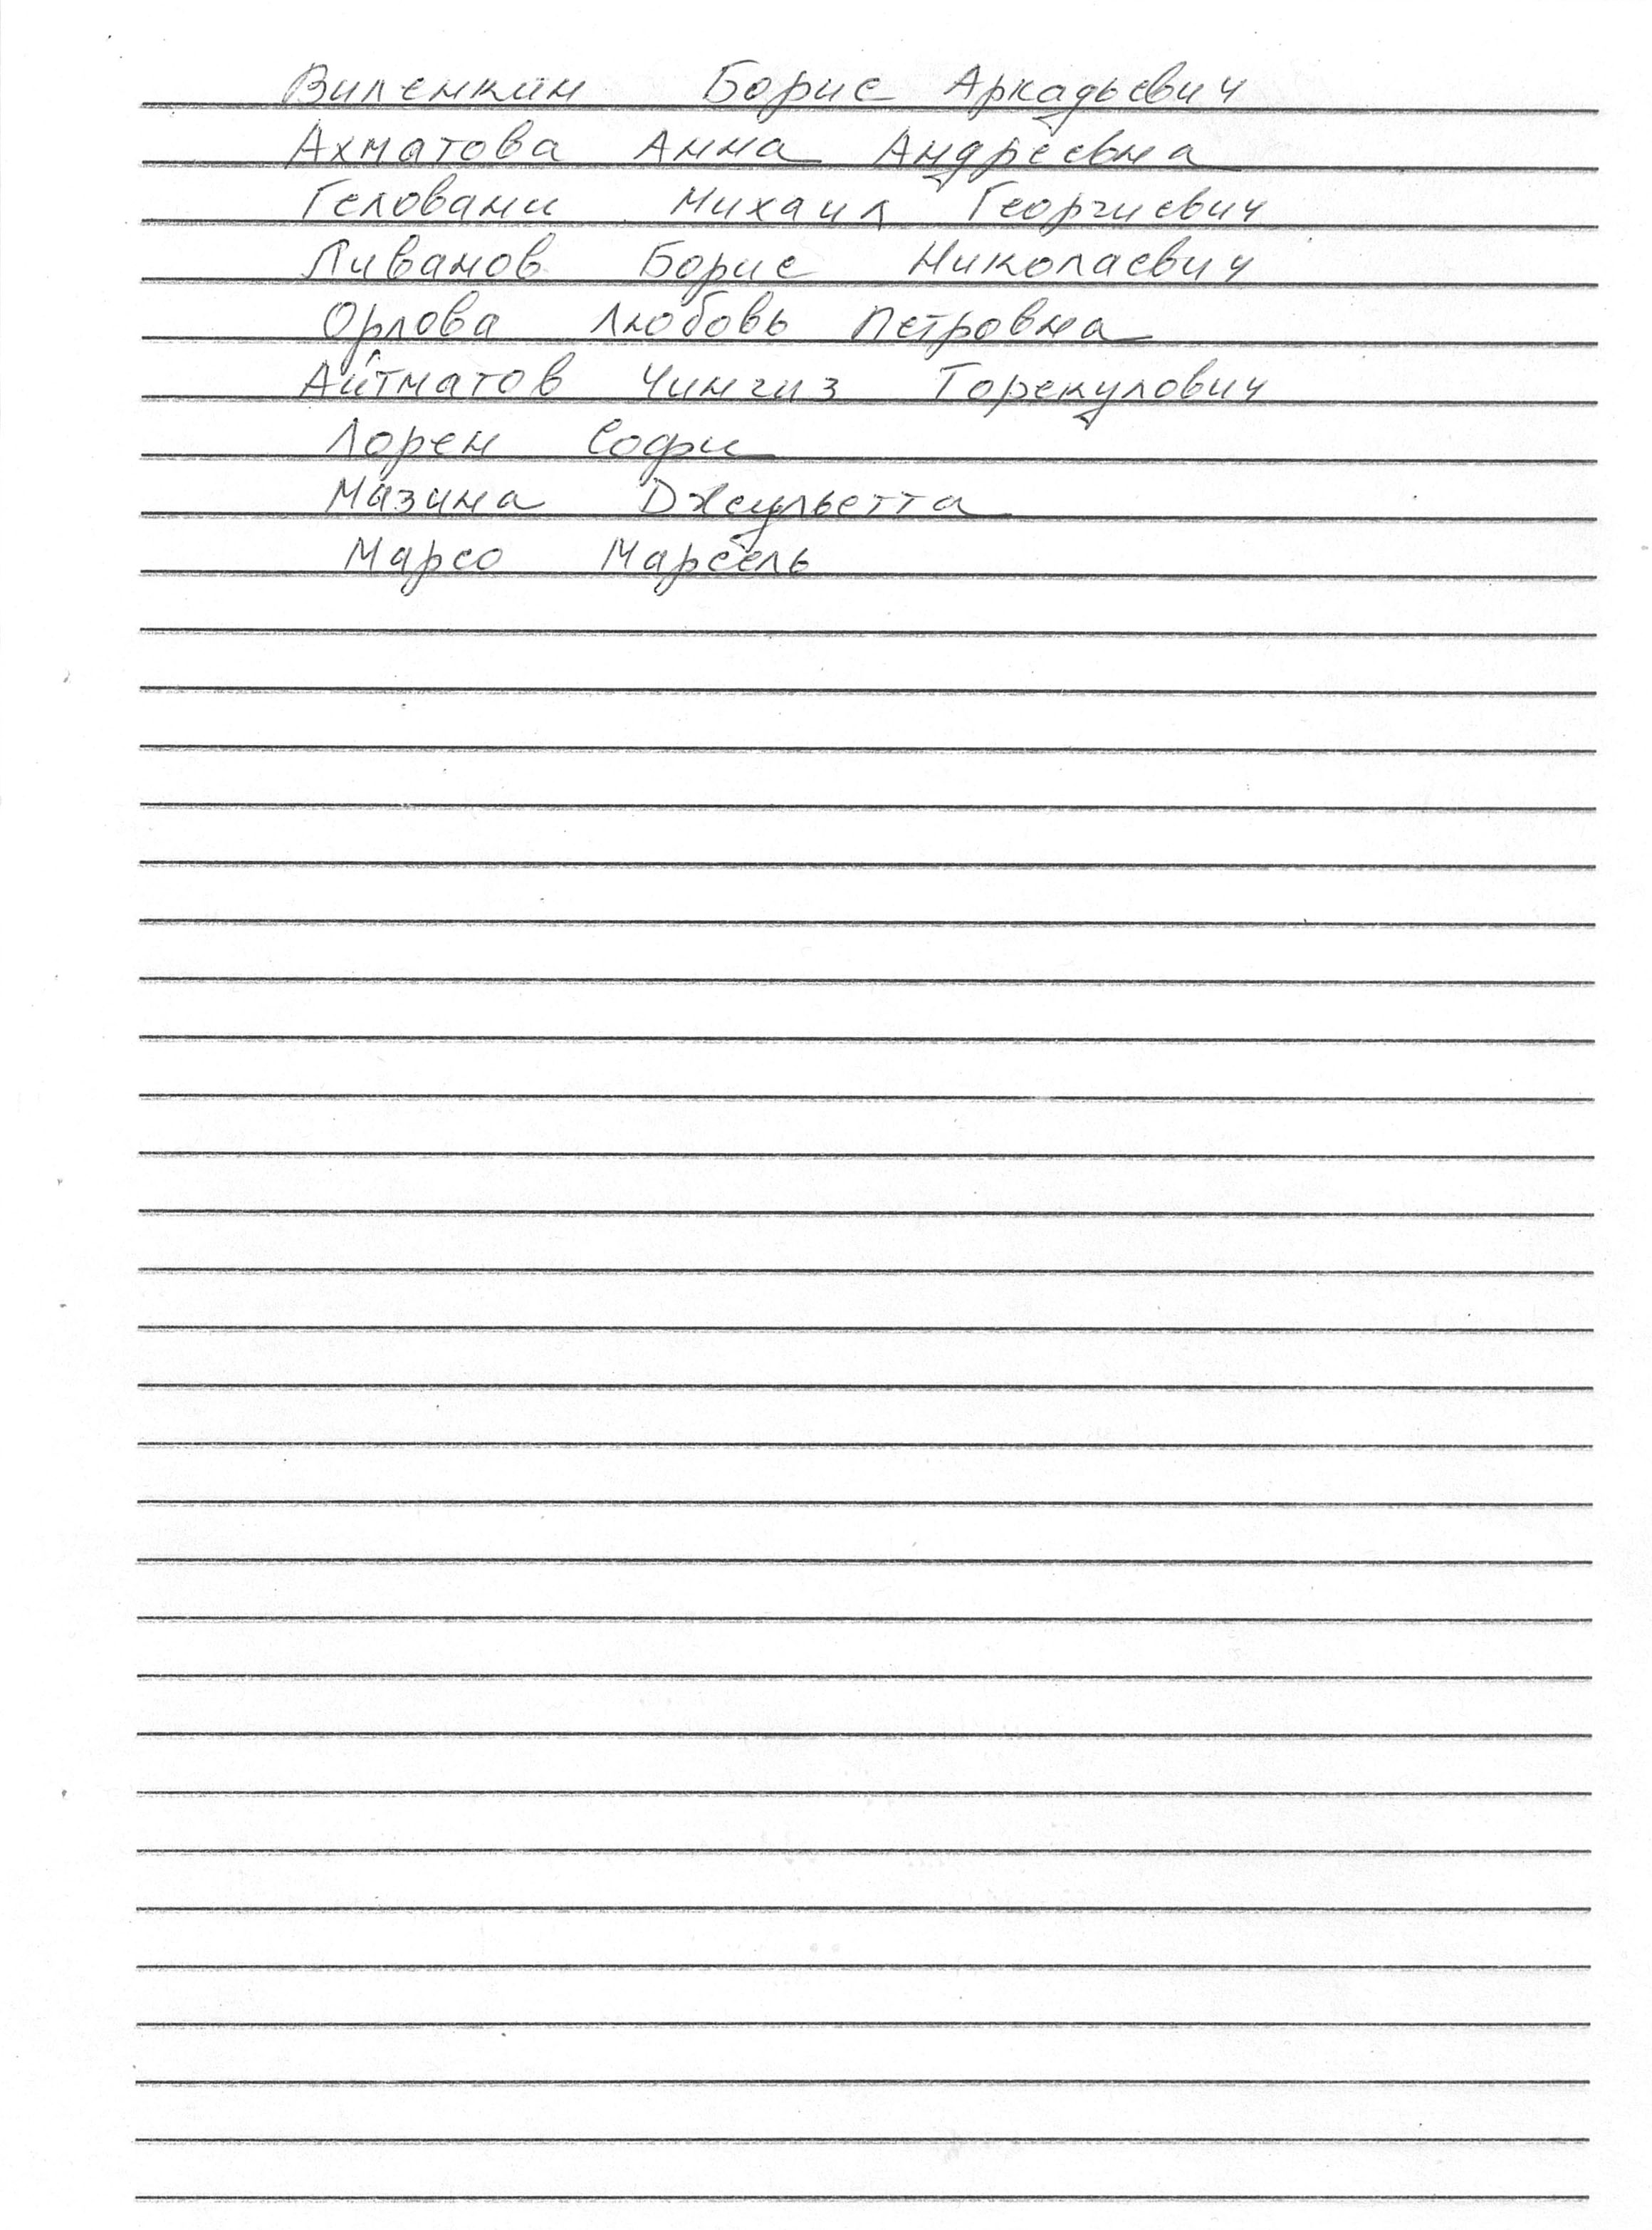 Виленкин Борис Аркадьевич
Ахматова Анна Андреевна
Геловани Михаил Георгиевич
Ливанов Борис Николаевич
Орлова Любовь Петровна
Айтматов Чингиз Торекулович
Лорен Софи
Мазина Джульетта
Марсо Марсель